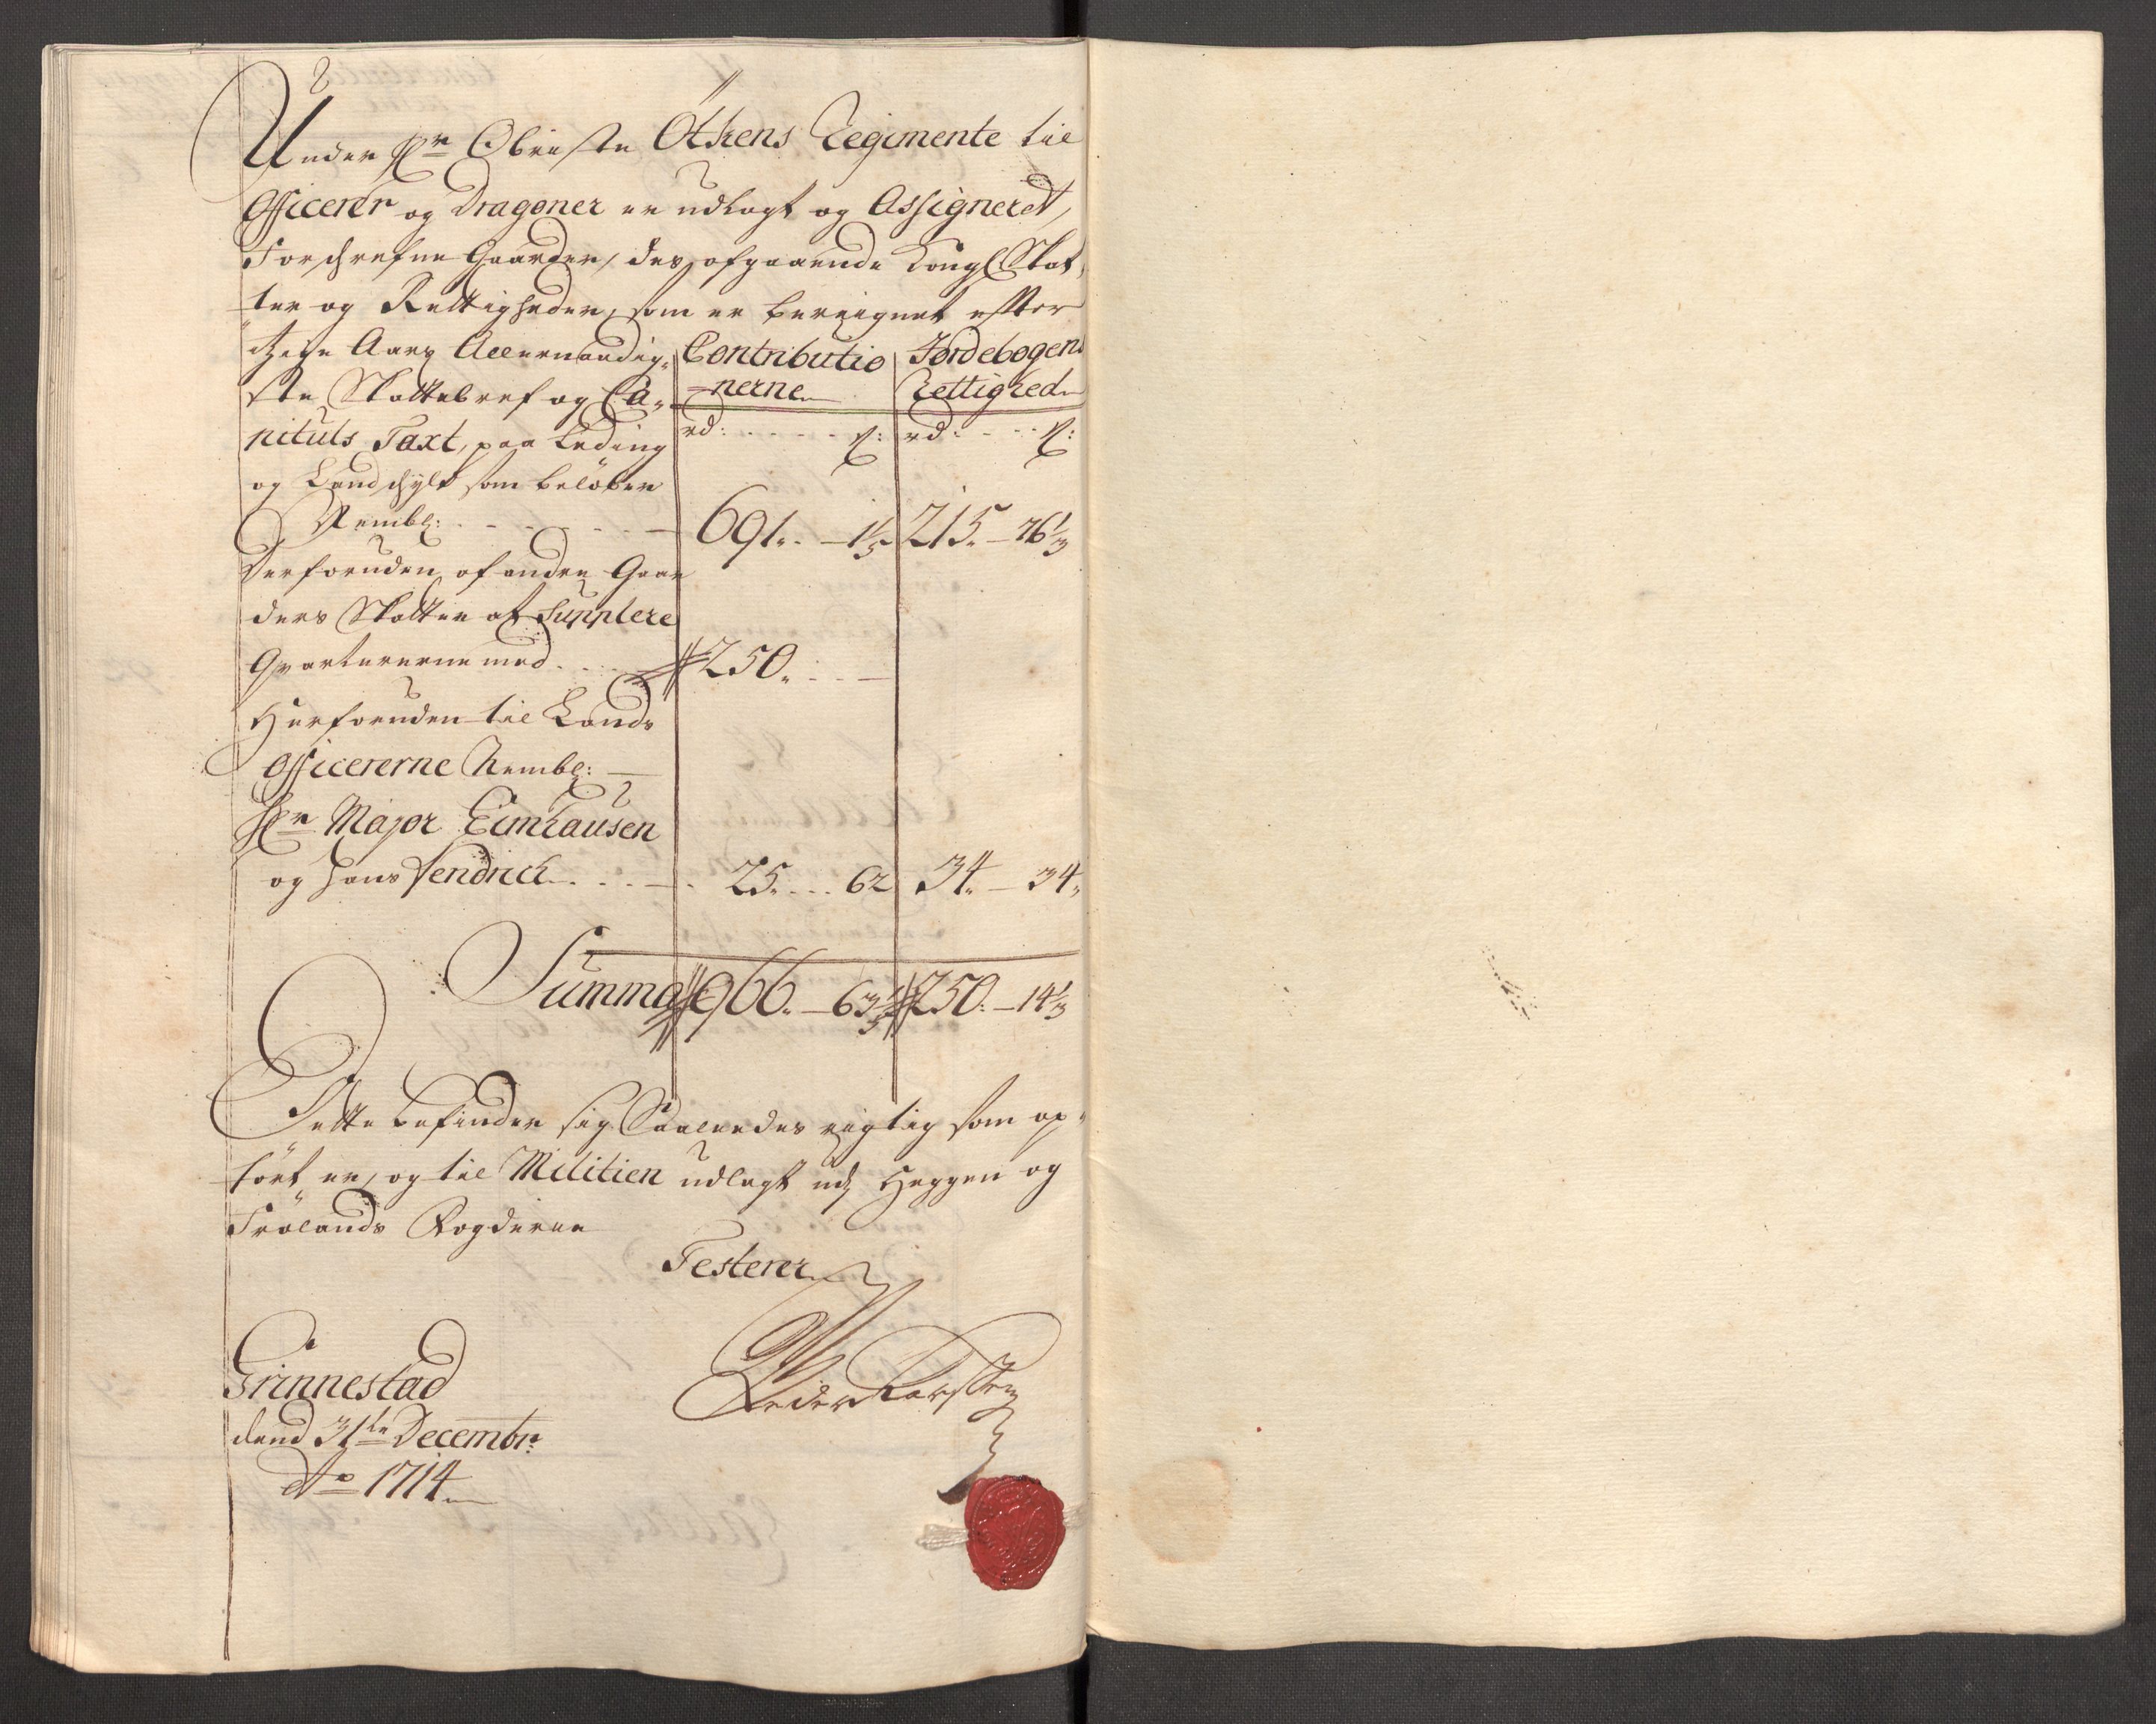 Under Hr Obriste Öthens Regimente til
Officerer og Dragoner er udlagt og Assigneret,
Forschrefne Gaarder, des afgaaende Kongl. Skat,
ter og Rettigheder, som er bereignet efter
dette Aars Allernaadig,
ste Skattebref og Ca,
pituls Taxt, paa Leding
og Landschyld som beløber
Contributio
-nerne
Jordebogens
Rettighed
rd: ß: rd: ß:
Nembl: 691. - 1 1/5 215. - 76 1/3
Derforuden af andre Gaar
ders Skatter at Supplere
Qvartererne med 250. -
Herforuden til Lands
Officererne Nembl:
Hr Major Eimhausen
og hans Fendrich 25. 62 34. - 34.
Summa 966. - 63 1/5 250. - 14 1/3
Dette befindes sig Saaledes rigtig som op,
ført er, og til Militien udlagt udj Heggen og
Frølands Fogderie
Testerer
Grinnestad
dend 31te Decembr:
Ao 1714
Peder Karssen